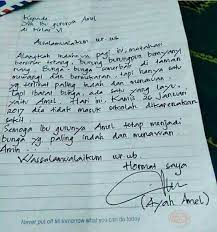 Kepada
Yth Ibu gurunya Amel
di Kelas VI
Assalamualaikum wr wb.
Alangkah indahnya pagi ini, matahari
bersinar terang, burung burungpun bernyanyi
riang. Bunga-bunga semerbak di taman
mewangi dan berwarna. tapi hanya satu
yg terlihat paling indah dan menawan
Tapi ibarat bunga, ada satu yang layu,
yaitu Amel. Hari ini, Kamis 26 Januari
2017 dia tidak masuk sekolah dikarenakan
sakit
Semoga Ibu gurunya Amel tetap menjadi
bunga yg paling indah dan menawan
Amin...
Wassalamualaikum wr wb.
Hormat saya
(Ayah Amel)
Never put off till tomorrow what you can do today